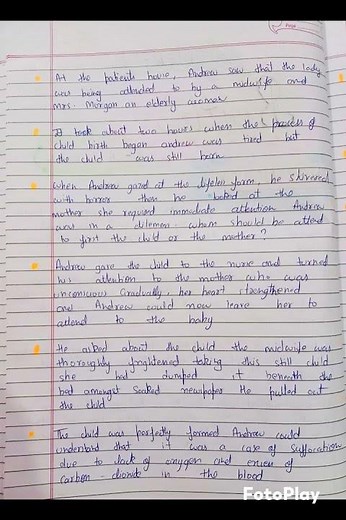 Page
At the patients house, Andrew saw that the lady
was being attended to by a midwife and
mrs. Morgan an elderly woman
It took about two hours when the process of
child birth began andrew was tired but
the child was still born
when Andrew gazed at the lifeless form, he shivered
with horror then he looked at the
mother she required immediate attention Andrew
was in a dilemma whom should be attend
to first the child or the mother?
Andrew gave the child to the nurse and turned
his attention to the mother who was
unconscious Gradually, her heart strengthened
and Andrew could now leave her to
attend to the baby
He asked about the child the midwife was
thoroughly frightened taking this still child
she had dumped it beneath the
bed amongst soaked newspaper He pulled out
the child
The child was perfectly formed Andrew could
understand that it was a case of suffocation
due to lack of oxygen and excess of
carbon-dioxide in the blood
FotoPlay